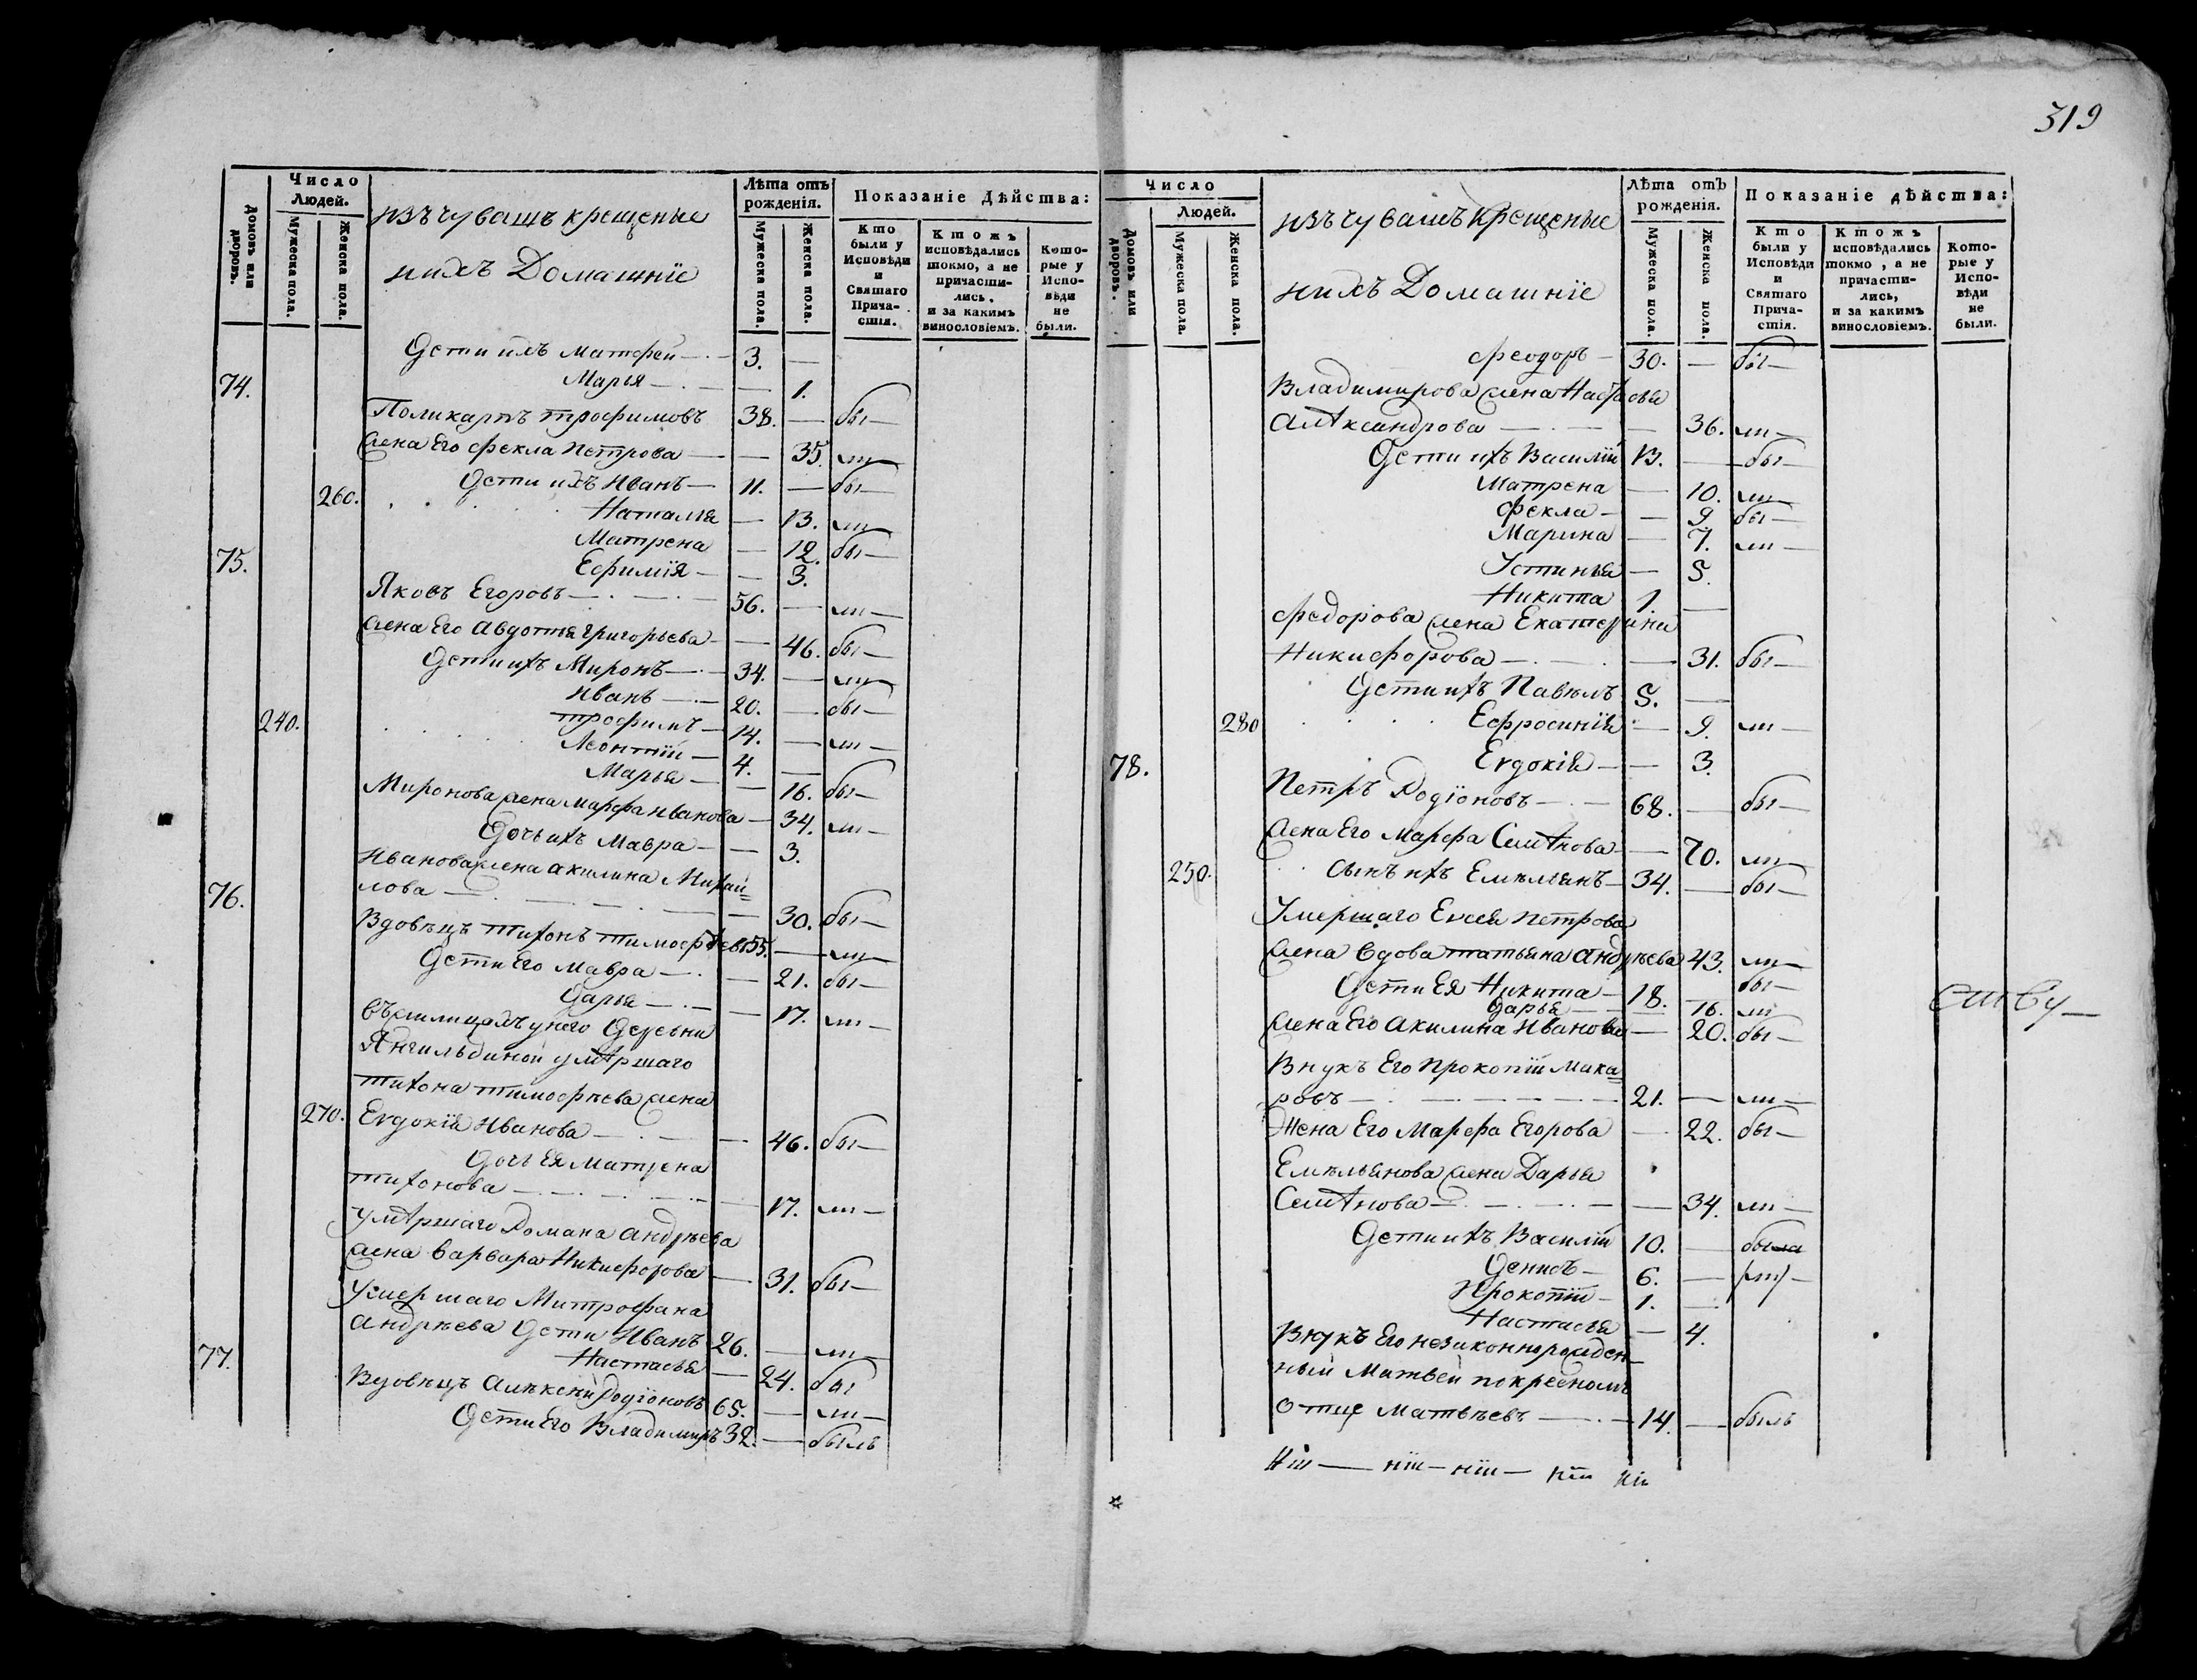 319
Число
Людей.
Домовъ или дворовъ.
Мужеска пола.
Женска пола.
изъ чувашъ крещеные
и ихъ Домашніе
Лѣта отъ рожденія.
Мужеска пола.
Женска пола.
Показаніе Дѣйства:
Кто были у Исповѣди и Святаго Причастія.
Ктожъ исповѣдались токмо, а не причастились, и за какимъ винословіемъ.
Которые у Исповѣди не были.
Дети ихъ Матфей — 3. —
Марья — — 1.
74.
Поликарпъ трофимовъ 38. — бы —
жена Его фекла Петрова — — 35. ли —
Дети ихъ Иванъ — 11. — бы —
260. Наталья — 13. ли —
Матрена — 12. бы —
Ефимія — — 3.
75.
Яковъ Егоровъ — 56. — ли —
жена Его Авдотья григорьева — — 46. бы —
Дети ихъ Миронъ — 34. — ли —
Иванъ — 20. — бы —
240. трофимъ — 14. — ли —
Леонтій — 4. —
Марья — — 16. бы —
Миронова жена марфа иванова — 34. ли —
Дочь ихъ Мавра — — 3.
Иванова жена акилина Михай=
лова — — 30. бы —
76.
Вдовецъ тихонъ тимофѣевъ 55. — ли —
Дети Его Мавра — — 21. бы —
Дарья — — 17. ли —
въ жилищахъ у него Деревни
Янгильдиной умѣршаго
тихона тимофеева жена
270. Евдокія Иванова — — 46. бы —
Дочь Ея Матрена
тихонова — — 17. ли —
умѣршаго Романа андреева
жена варвара Никифорова — 31. бы —
умершаго Митрофана
андреева Дети Иванъ 26. — ли —
Настасья — 24. бы
77.
Вдовецъ Алексей Родіоновъ 65. — ли —
Дети Его Владимиръ 32. — былъ
Число
Людей.
Домовъ или дворовъ.
Мужеска пола.
Женска пола.
изъ чувашъ крещеные
и ихъ Домашніе
Лѣта отъ рожденія.
Мужеска пола.
Женска пола.
Показаніе дѣйства:
Кто были у Исповѣди и Святаго Причастія.
Ктожъ исповѣдались токмо, а не причастились, и за какимъ винословіемъ.
Которые у Исповѣди не были.
феодоръ — 30. — бы —
Владимирова жена Настасья
Алѣксандрова — — 36. ли —
Дети ихъ Василій 13. — бы —
Матрена — 10. ли —
фекла — — 9. бы —
Марина — 7. ли —
Устинья — 5.
Никита 1. —
федорова жена Екатерина
Никифорова — — 31. бы —
Дети ихъ Павелъ 5. —
280 Ефросинія — 9. ли —
Евдокія — — 3.
78.
Петръ Родіоновъ — 68. — бы —
жена Его марфа Семѣнова — — 70. ли —
250. сынъ ихъ Емельянъ — 34. — бы —
Умершаго Евсея петрова
жена вдова татьяна андреева 43. ли —
Дети Ея Никита — 18. — бы —
Дарья — — 16. ли
жена Его акилина Иванова — 20. бы —
Внукъ Его Прокопій Мака=
ровъ — 21. — ли —
Жена Его Марфа Егорова — 22. бы —
Емельянова жена Дарья
Семѣнова — — 34. ли —
Дети ихъ Василій 10. — была
Денисъ — 6. —
Прокопій — 1. —
Настасья — 4.
Внукъ Его незаконнорожден-
ный Матвей по кресномъ
отце Матвеевъ — 14. — былъ